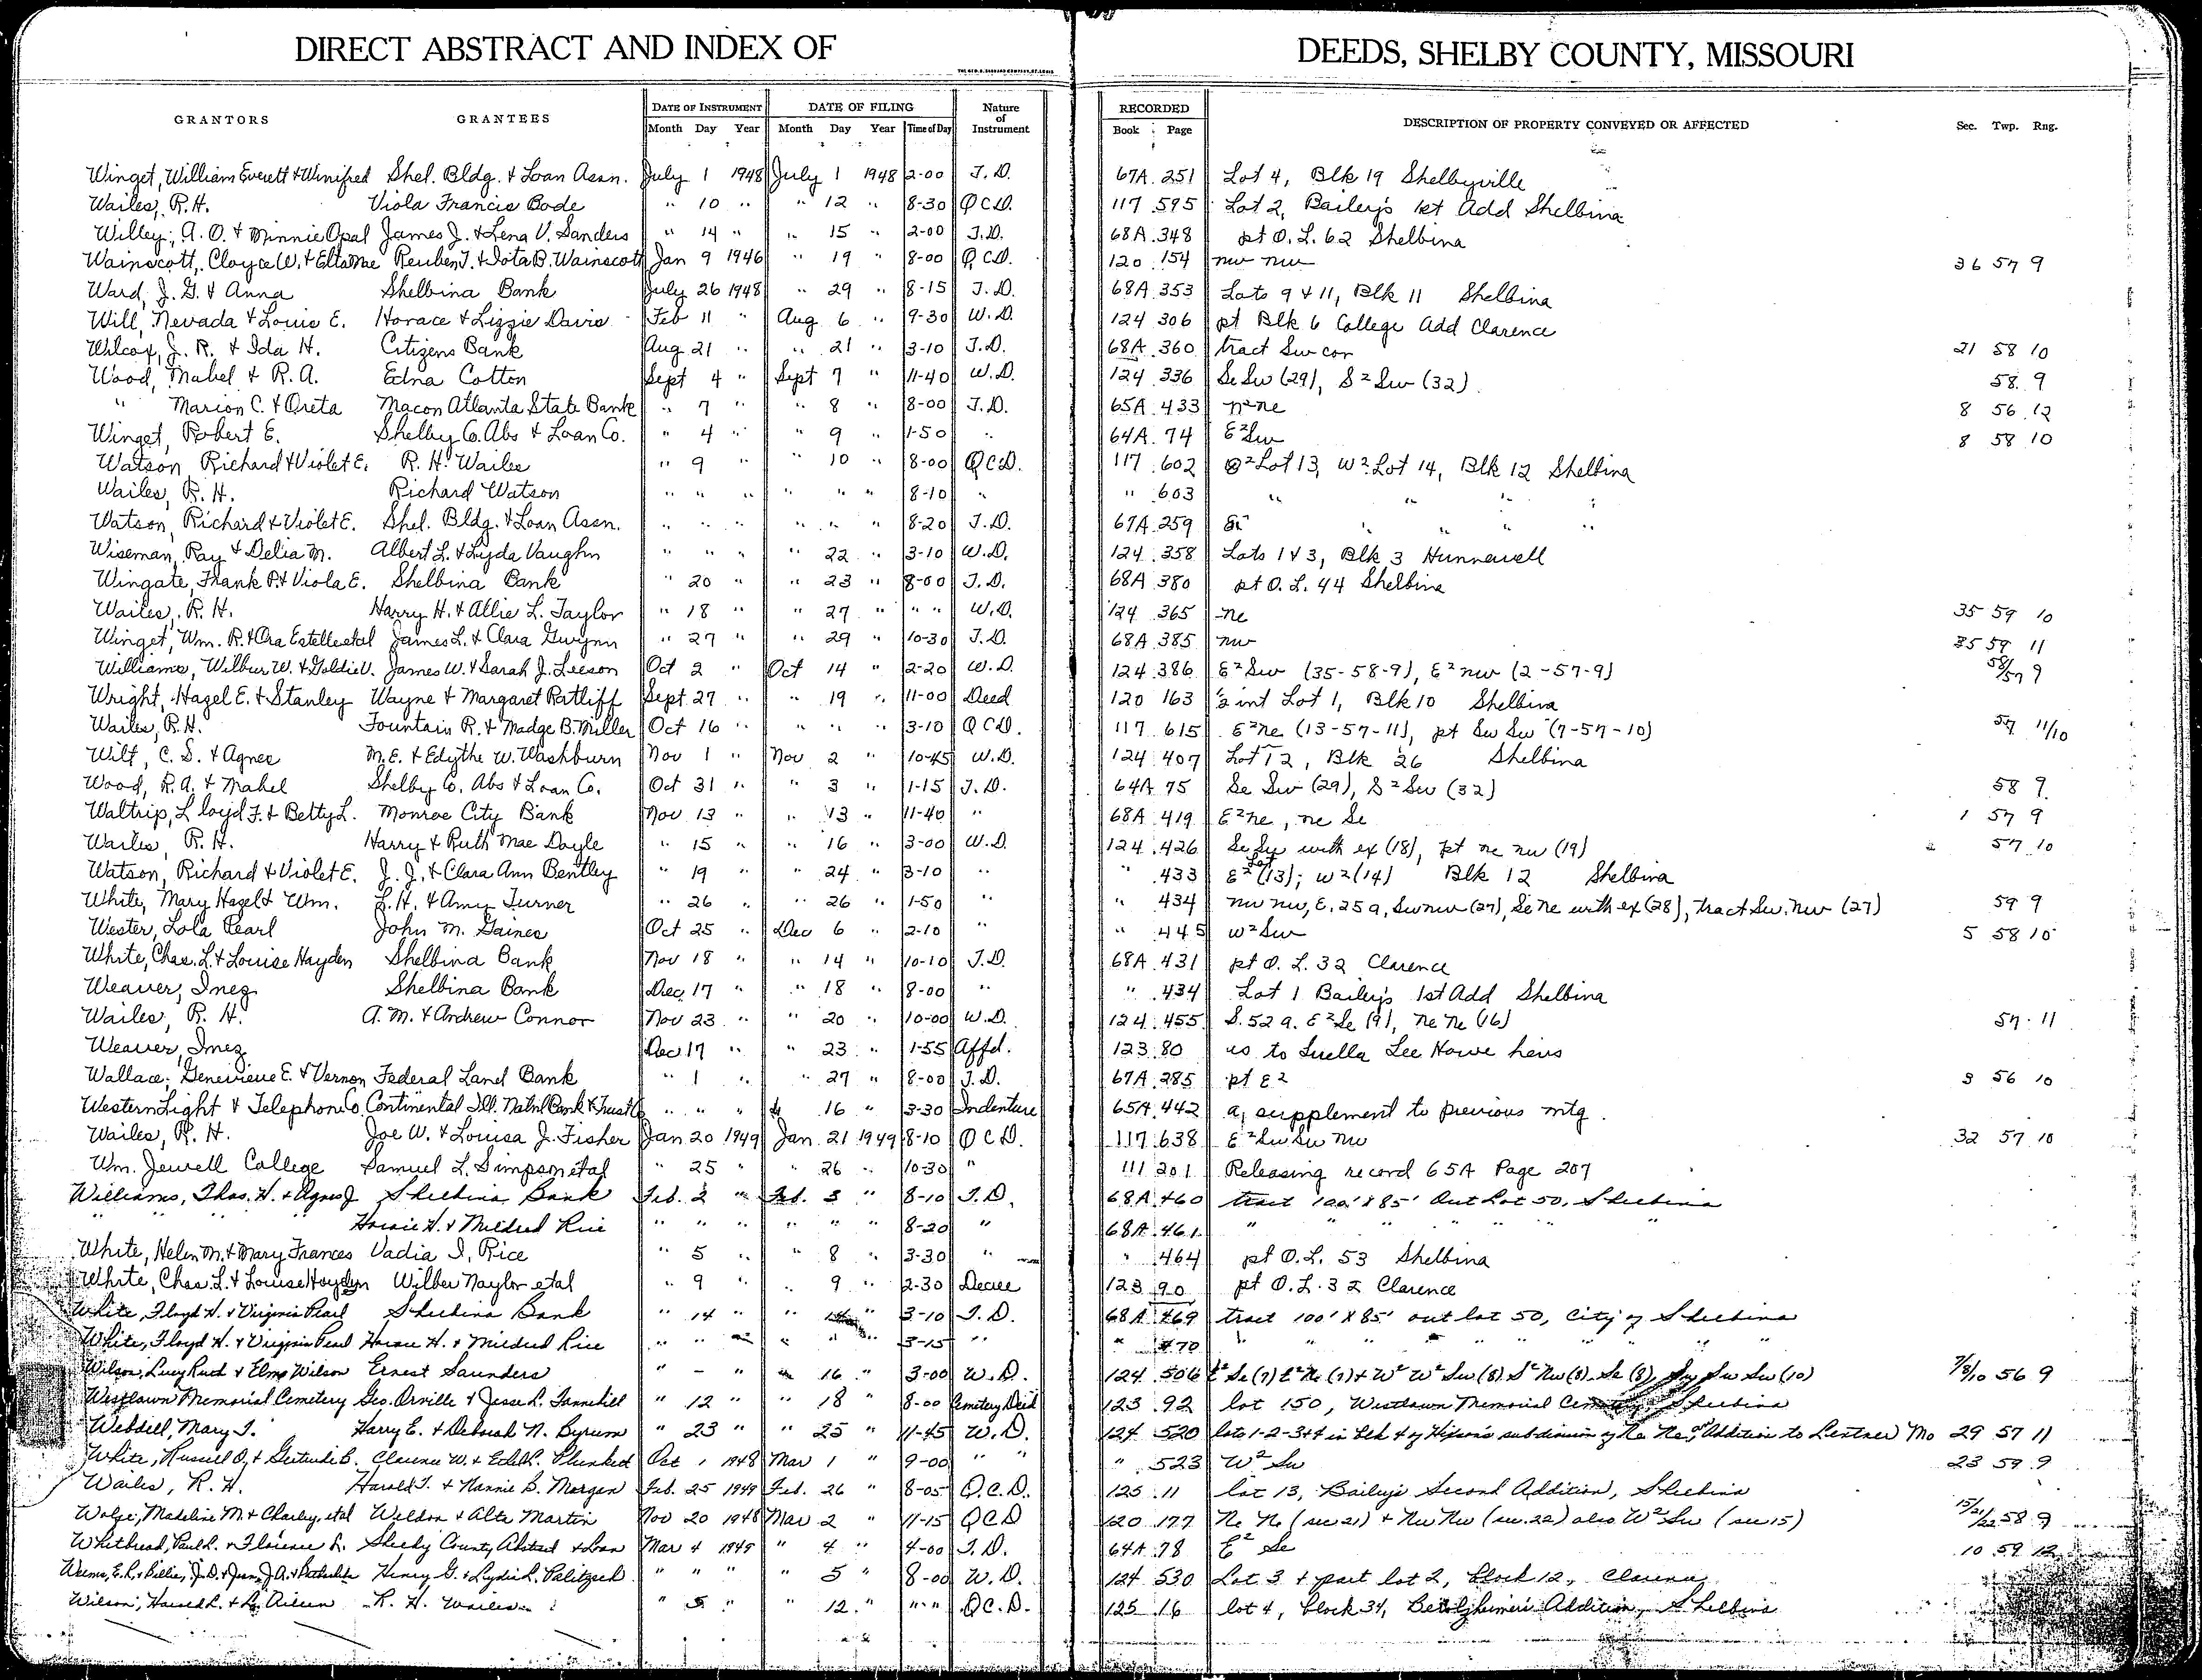 DIRECT ABSTRACT AND INDEX OF DEEDS, SHELBY COUNTY, MISSOURI
GRANTORS GRANTEES DATE OF INSTRUMENT DATE OF FILING Nature of Instrument RECORDED DESCRIPTION OF PROPERTY CONVEYED OR AFFECTED Sec. Twp. Rng.
Month Day Year Month Day Year Time of Day Book Page
Winget, William Everett & Winifred Shel. Bldg. & Loan Assn. July 1 1948 July 1 1948 2-00 T.D. 67A 251 Lot 4, Blk 19 Shelbyville
Wailes, R.H. Viola Francis Bode " 10 " " 12 " 8-30 QCD. 117 595 Lot 2, Bailey's 1st Add Shelbina
Willey, A.O. & Minnie Opal James J. & Lena V. Sanders " 14 " " 15 " 2-00 T.D. 68A 348 pt O.L. 62 Shelbina
Wainscott, Cloyce W. & Elta Mae Reuben T. & Iota B. Wainscott Jan 9 1946 " 19 " 8-00 QCD. 120 154 nw nw 36 57 9
Ward, J.G. & Anna Shelbina Bank July 26 1948 " 29 " 8-15 T.D. 68A 353 Lots 9 & 11, Blk 11 Shelbina
Will, Nevada & Louis E. Horace & Lizzie Davis Feb 11 " Aug 6 " 9-30 W.D. 124 306 pt Blk 6 College Add Clarence
Wilcox, J.R. & Ida H. Citizens Bank Aug 21 " " 21 " 3-10 T.D. 68A 360 tract Sw cor 21 58 10
Wood, Mabel & R.A. Edna Cotton Sept 4 " Sept 7 " 11-40 W.D. 124 336 Se Sw (29), S² Sw (32) 58 9
" Marion C. & Oreta Macon Atlanta State Bank " 7 " " 8 " 8-00 T.D. 65A 433 n² ne 8 56 12
Winget, Robert E. Shelby Co. Abs & Loan Co. " 4 " " 9 " 1-50 " 64A 74 E² Sw 8 58 10
Watson, Richard & Violet E. R.H. Wailes " 9 " " 10 " 8-00 QCD. 117 602 E² Lot 13, W² Lot 14, Blk 12 Shelbina
Wailes, R.H. Richard Watson " " " " " " 8-10 " " 603 " " " "
Watson, Richard & Violet E. Shel. Bldg. & Loan Assn. " " " " " " 8-20 T.D. 67A 259 " " " " "
Wiseman, Ray & Delia M. Albert L. & Lyda Vaughn " " " " 22 " 3-10 W.D. 124 358 Lots 1 & 3, Blk 3 Hunnewell
Wingate, Frank P. & Viola E. Shelbina Bank " 20 " " 23 " 8-00 T.D. 68A 380 pt O.L. 44 Shelbina
Wailes, R.H. Harry H. & Allie L. Taylor " 18 " " 27 " " " W.D. 124 365 ne 35 59 10
Winget, Wm. R. & Ora Estelle etal James L. & Clara Gwynn " 27 " " 29 " 10-30 T.D. 68A 385 nw 35 59 11
Williams, Wilbur W. & Goldie V. James W. & Sarah J. Leeson Oct 2 " Oct 14 " 2-20 W.D. 124 386 E² Sw (35-58-9), E² nw (2-57-9) 58/57 9
Wright, Hazel E. & Stanley Wayne & Margaret Ratliff Sept 27 " " 19 " 11-00 Deed 120 163 ½ int Lot 1, Blk 10 Shelbina
Wailes, R.H. Fountain R. & Madge B. Miller Oct 16 " " " " 3-10 QCD. 117 615 E² ne (13-57-11), pt Sw Sw (7-57-10) 57 11/10
Wilt, C.S. & Agnes M.E. & Edythe W. Washburn Nov 1 " Nov 2 " 10-45 W.D. 124 407 Lot 12, Blk 26 Shelbina
Wood, R.A. & Mabel Shelby Co. Abs & Loan Co. Oct 31 " " 3 " 1-15 T.D. 64A 75 Se Sw (29), S² Sw (32) 58 9
Waltrip, Lloyd F. & Betty L. Monroe City Bank Nov 13 " " 13 " 11-40 " 68A 419 E² ne, ne Se 1 57 9
Wailes, R.H. Harry & Ruth Mae Doyle " 15 " " 16 " 3-00 W.D. 124 426 Se Sw with ex (18), pt ne nw (19) 57 10
Watson, Richard & Violet E. J.J. & Clara Ann Bentley " 19 " " 24 " 3-10 " " 433 E² Lot (13); W² (14) Blk 12 Shelbina
White, Mary Hazel & Wm. L.H. & Amy Turner " 26 " " 26 " 1-50 " " 434 nw nw, E. 25 a, Sw nw (27), Se ne with ex (28), tract Sw. nw (27) 59 9
Wester, Lola Pearl John M. Gaines Oct 25 " Dec 6 " 2-10 " " 445 W² Sw 5 58 10
White, Chas. L. & Louise Hayden Shelbina Bank Nov 18 " " 14 " 10-10 T.D. 68A 431 pt O.L. 32 Clarence
Weaver, Inez Shelbina Bank Dec 17 " " 18 " 8-00 " " 434 Lot 1 Bailey's 1st Add Shelbina
Wailes, R.H. A.M. & Andrew Connor Nov 23 " " 20 " 10-00 W.D. 124 455 S. 52 a. E² Se (9), ne ne (16) 57 11
Weaver, Inez Dec 17 " " 23 " 1-55 Affd. 123 80 as to Luella Lee Howe heirs
Wallace, Genevieve E. & Vernon Federal Land Bank " 1 " " 27 " 8-00 T.D. 67A 285 pt E² 3 56 10
Western Light & Telephone Co. Continental Ill. Nat'nl Bank & Trust Co " " " 16 " 3-30 Indenture 65A 442 a supplement to previous mtg.
Wailes, R.H. Joe W. & Louisa J. Fisher Jan 20 1949 Jan 21 1949 8-10 QCD. 117 638 E² Sw Sw nw 32 57 10
Wm. Jewell College Samuel L. Simpson etal " 25 " " 26 " 10-30 " 111 201 Releasing record 65A Page 207
Williams, Thos. H. & Agnes J. Shelbina Bank Feb. 2 " Feb. 3 " 8-10 T.D. 68A 460 tract 100' X 85' Out Lot 50, Shelbina
" " " " Horace H. & Mildred Rice " " " " " " 8-20 " 68A 461 " " " " " " "
White, Helen M. & Mary Frances Vadia I. Rice " 5 " " 8 " 3-30 " " 464 pt O.L. 53 Shelbina
White, Chas. L. & Louise Hayden Wilber Naylor etal " 9 " " 9 " 2-30 Decree 123 90 pt O.L. 32 Clarence
White, Floyd H. & Virginia Pearl Shelbina Bank " 14 " " 14 " 3-10 T.D. 68A 469 tract 100' X 85' out lot 50, City of Shelbina
White, Floyd H. & Virginia Pearl Horace H. & Mildred Rice " " " " " " 3-15 " " 470 " " " " " " "
Wilson, Lucy Ruth & Elmo Wilson Ernest Saunders " - " " 16 " 3-00 W.D. 124 506 E² Se (7) E² Ne (7) & W² W² Sw (8) S² Nw (8) Se (8) Sw Sw (10) 7/8/10 56 9
Westlawn Memorial Cemetery Geo. Orville & Jesse L. Tannehill " 12 " " 18 " 8-00 Cemetery Deed 123 92 lot 150, Westlawn Memorial Cemetery, Shelbina
Weddell, Mary T. Harry E. & Deborah N. Byrum " 23 " " 25 " 11-45 W.D. 124 520 lots 1-2-3 & 4 in blk 4 of Hixson's subdivision of Ne Ne, Addition to Lentner Mo 29 57 11
White, Russell O. & Gertrude B. Clarence W. & Ethel L. Plunkett Oct 1 1948 Mar 1 " 9-00 " " " 523 W² Sw 23 59 9
Wailes, R.H. Harold T. & Nannie B. Morgan Feb. 25 1949 Feb. 26 " 8-05 Q.C.D. 125 11 lot 13, Bailey's Second Addition, Shelbina
Wolfe, Madeline M. & Charley, etal Weldon & Alta Martin Nov 20 1948 Mar 2 " 11-15 QCD 120 177 Ne Ne (sec 21) & Nw Nw (sec. 22) also W² Sw (sec 15) 15/21/22 58 9
Whithead, Paul L. & Florence L. Shelby County Abstract & Loan Mar 4 1949 " 4 " 4-00 T.D. 64A 78 E² Se 10 59 12
E.L. & Billie, J.D. & June, J.A. & Henry G. & Lydia L. Palitzsch " " " " 5 " 8-00 W.D. 124 530 Lot 3 & part lot 2, block 12, Clarence
Wilson, Harold L. & Aileen R.H. Wailes " 5 " " 12 " " " QC.D. 125 16 lot 4, block 34, Addition, Shelbina